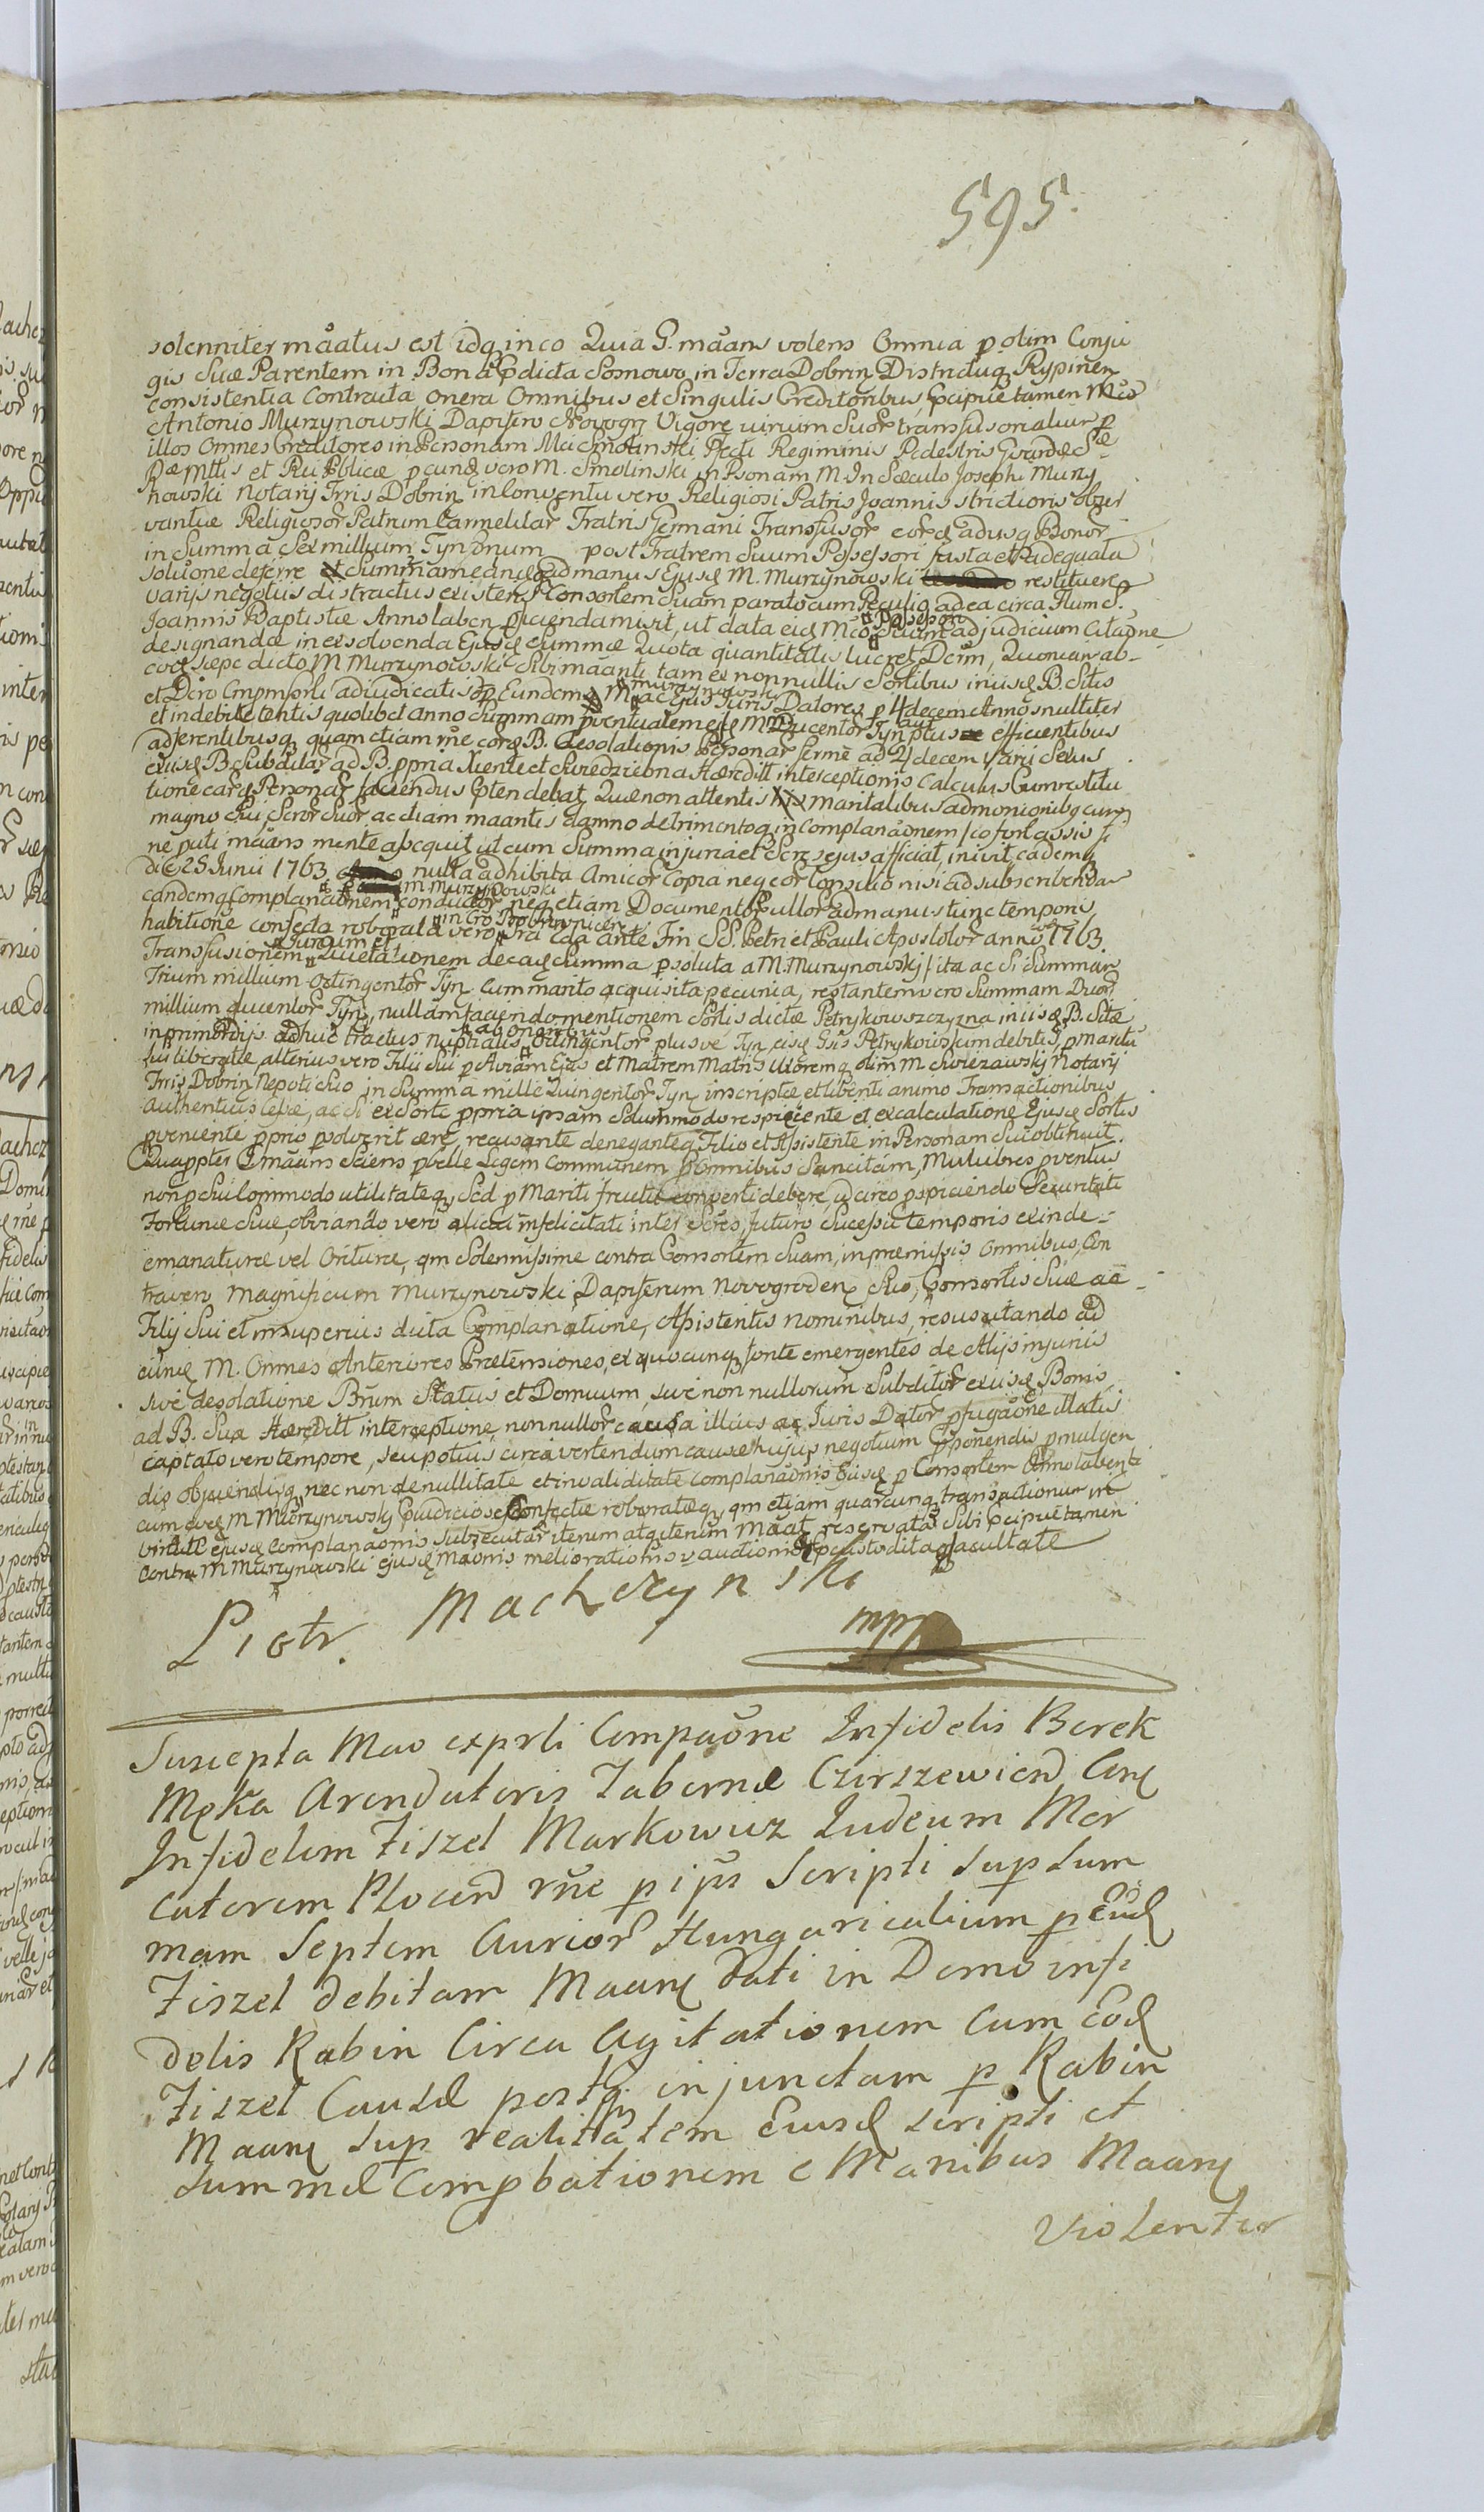 595.
solenniter maatus est idq in eo Quia G. maans volens Omnia p olim Conju
gis Suæ Parentem in Bona pdicta Sosnowo in Terra Dobrin Districtuq Rypinen
consistentia Contracta onera Omnibus et Singulis Creditoribus, pcipue tamen Mco
Antonio Murzynowski Dapifero Nowogr Vigore
illos Omnes Creditores in Personam Mci Smolinski Pfecti Regiminis Pedestris Gwardæ Sæ
Ræ Mttis et Rei Pblicæ p eund vero M. Smolinski in Psonam M. In Sæculo Joseph Murzy
nowski Notarÿ Trris Dobrin in Conventu vero Religiosi Patris Joannis strictioris obser
vantiæ Religiosor Patrum Carmelitar Fratris Germani Transfusor eorq adusq Bonor
in Summa Sex millium Tyn post Fratrem Suum Possessori justa et adequata
solutione deferre Summamq eand ad manus Ejusd M. Murzynowski restituere
varÿs negotiis distractus existen Consortem Suam parato cum Peculio ad ea circa Flum S.
Joannis Baptistæ Anno laben pficienda misit, ut data eid Mco Possessori ad judicium Citaone
designandæ in exsolvenda Ejusd Summæ Quota quantitatis lucret Decim, Quoniam ab
eod sæpe dicto M Murzynowski Sibi maanti tam ex nonnullis Sortibus in iisd B. Sitis
et Dcro adjudicatis p Eundemq M Murzynowski ac Ejus Juris Datores p 14decem Annos nulliter
et indebite tentis quolibet anno Summam pventualem Ducentor Tyn plus aut efficientibus
adferentibusq quam etiam rne eorq B. desolationis Personar ferme ad 24 decem varii Sexus
exiisd B. Subditar ad B. ppria et Swiedziebna Hæreditt interceptionis Calculus Cum restitu
tione earq Personar faciendus Spten debat, Quæ non attentis his maritalibus admonitionibq cum
magno Sui, Scror Suor, ac etiam maantis damno detrimentoq in Complanaonem
ne puti maans mente assequit, ut cum Summa injuria et Scres ejus afficiat, inivit, eademq
die 25 Junii 1763 nulla adhibita Amicor Copia neq eor Consilio nisi ad subscribendam
eandemq Complanaonem conductor m Murzynowski neq etiam Documentor ullor ad manus tunc temporis
habitione confecta roborata vero in Cro Bobrownicen fra 2da ante Fm SS. Petri et Pauli Apostolor anno 1763.
Transfusionem Jurium et Quietationem de ead Summa psoluta a M. Murzynowski, ita ac Si Summam
Trium millium Octingentor Tyn cum marito acquisita pecunia, restantem vero Summam Duor
millium ducentor Tyn, nullam faciendo mentionem Sortis dictæ Petrykowszczyzna in iisd B. Sitæ
in primordÿs adhuc tractus nuptialis ab oneribus Octingentor plusve Tyn, eisd Gsis Petrykowskum debitis, p maritu
sui liberatæ, alterius vero Filii Sui p Aviam Ejus et Matrem Matris Uxoremq olim M Swiezawskÿ Notarÿ
Trris Dobrin Nepoti Suo in Summa mille Quingentor Tyn inscriptæ et libenti animo Transactionibus
authenticis ac Si ex Sorte ppria ipsam Solummodo respiciente et ex calculatione Ejusd Sortis
pveniente pprio psolverit ære, recusante denegante q Filio et Assistente in Personam Sui obtinuit.
Quappter G maans Sciens pbelle Legem Communem p omnibus Sancitam, Mulibres pventus
non p Sui Commodo utilitateq, Sed p Mariti fructu converti debere, idcirco pspiciendo Securitati
Fortunæ Suæ, obviando vero alicui infelicitati inter Scres, futuro Sucessu temporis exinde
emanaturæ vel Orituræ, qm Solennissime contra Consortem Suam, in præmissis omnibus, Con
traven Magnificum Murzynowski Dapiferum Novogroden Suo, Consortis Suæ ac
Filÿ Sui et in superius dicta Complanatione, Assistentis nominibus, resuscitando ad
eund M. Omnes Anteriores Prætensiones, ex quocunq fonte emergentes de Alÿs injuriis
sive desolatione Bnum Status et Domuum, sive non nullorum Subditor ex iisd Bonis
ad B. Sua Hæreditt interceptione, non nullor causa illius ac Juris Dator pfugaone illatis
captato vero tempore, seu potius circa vertendum causæ hujus negotium Exponendis pmulgen
dis objiciendisq, nec non de nullitate et invaliditate Complanaonis Ejusd p Consortem Anno labente
cum eod M Murzynowskÿ pjudiciose Confectæ roboratæq, qm etiam quarcunq transactionum in
virtute ejusd Complanaonis Subsecutar iterum atq iterum Maat reservata Sibi pcipue tamen
contra M Murzynowski ejusd maonis meliorationis et auctionis pcustoditaq facultate
Piotr Machczynski
mpp
Suscepta Mao exprli Compaone Infidelis Berek
Męka Arendatoris Tabernæ Czirszewicn Con
Infidelem Fiszel Markowicz Judeum Mer
catorem Plocen rne p ipm Scripti Sup Sum
mam Septem Aureor Hungaricalium p Eund
Fiszel debitam Maan dati in Domo infi
delis Rabin Circa Agitationem Cum Eod
Fiszel Causæ postq injunctam p Rabin
Maan Sup realitatem Eiusd Scripti et
Summæ Compbationem e Manibus Maan
violenter